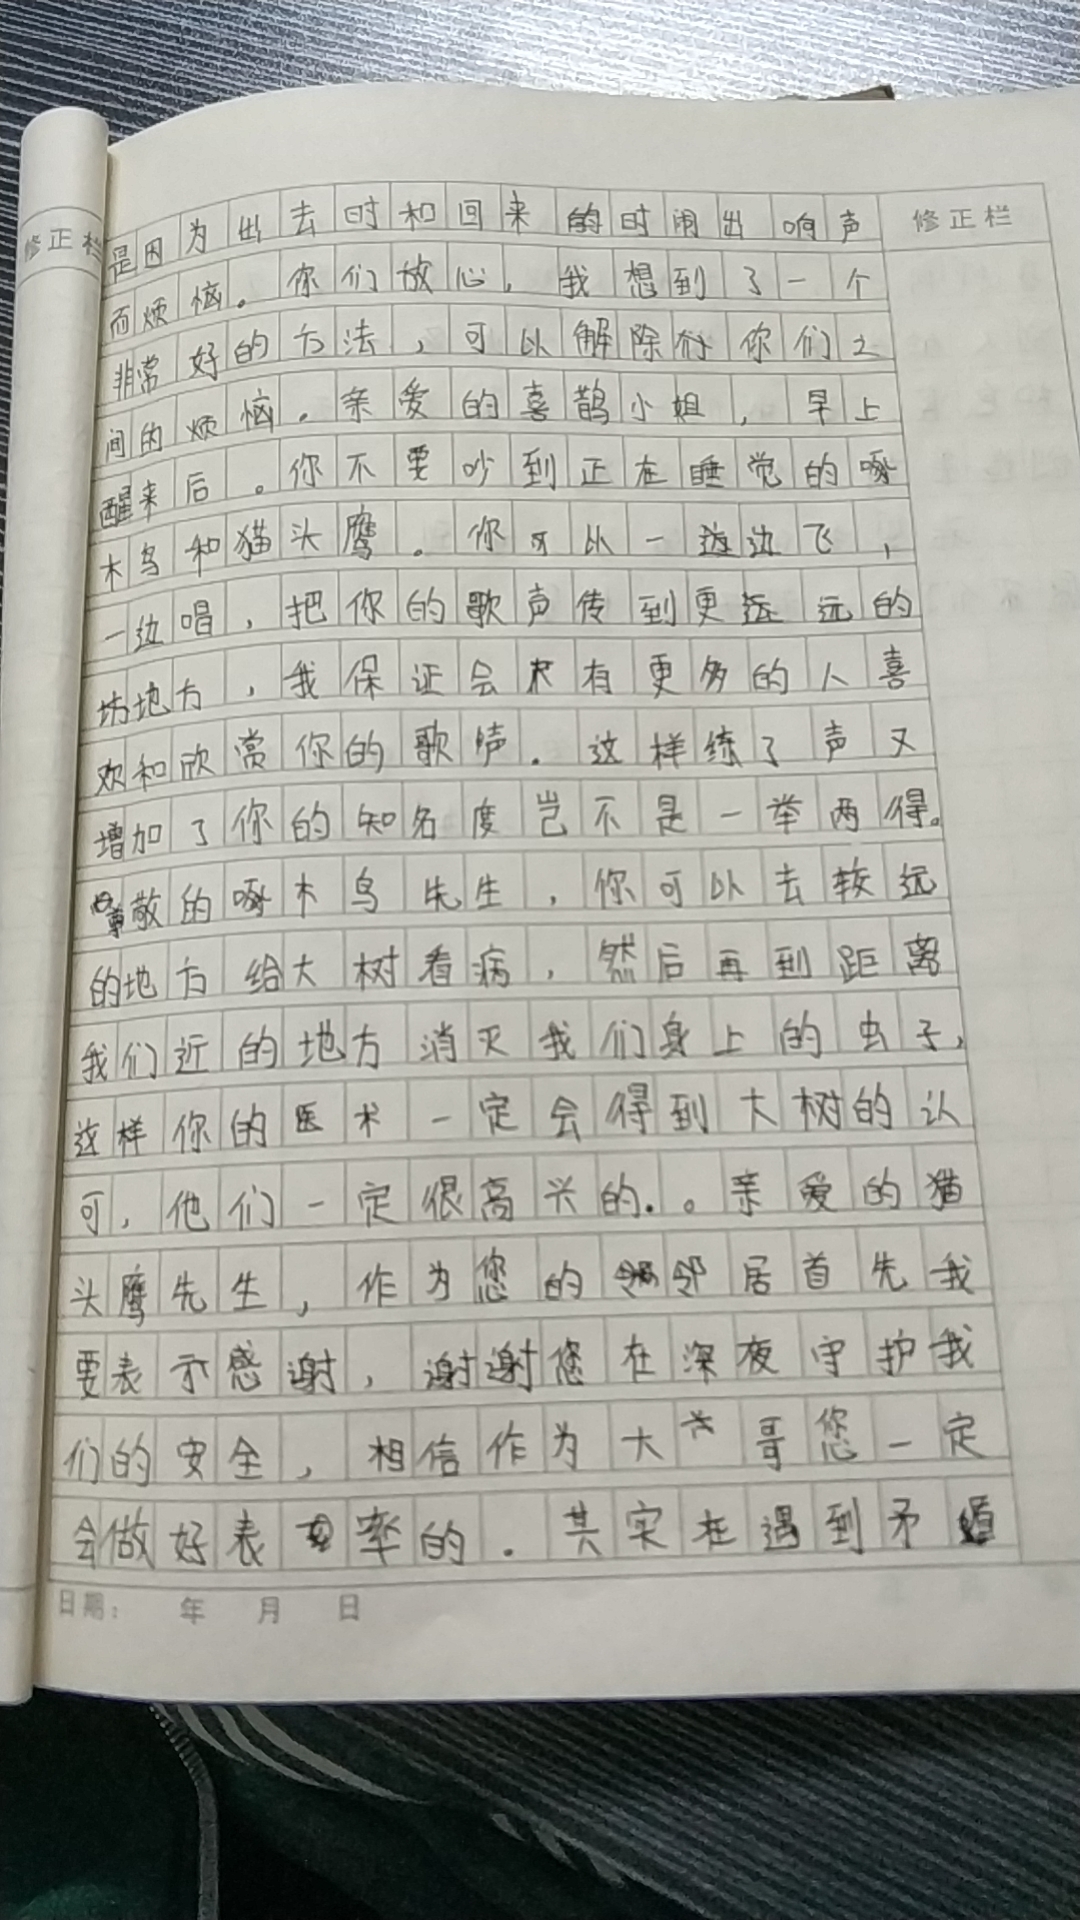 修正栏
修正栏
是因为出去时和回来的时闹出响声
而烦恼。你们放心，我想到了一个
非常好的方法，可以解除你们之
间的烦恼。亲爱的喜鹊小姐，早上
醒来后。你不要吵到正在睡觉的啄
木鸟和猫头鹰。你可以一边飞，
一边唱，把你的歌声传到更远的
地方，我保证会有更多的人喜
欢和欣赏你的歌声。这样练了声又
增加了你的知名度岂不是一举两得。
尊敬的啄木鸟先生，你可以去较远
的地方给大树看病，然后再到距离
我们近的地方消灭我们身上的虫子，
这样你的医术一定会得到大树的认
可，他们一定很高兴的。。亲爱的猫
头鹰先生，作为您的邻居首先我
要表示感谢，谢谢您在深夜守护我
们的安全，相信作为大哥您一定
会做好表率的。其实在遇到矛盾
日期： 年 月 日